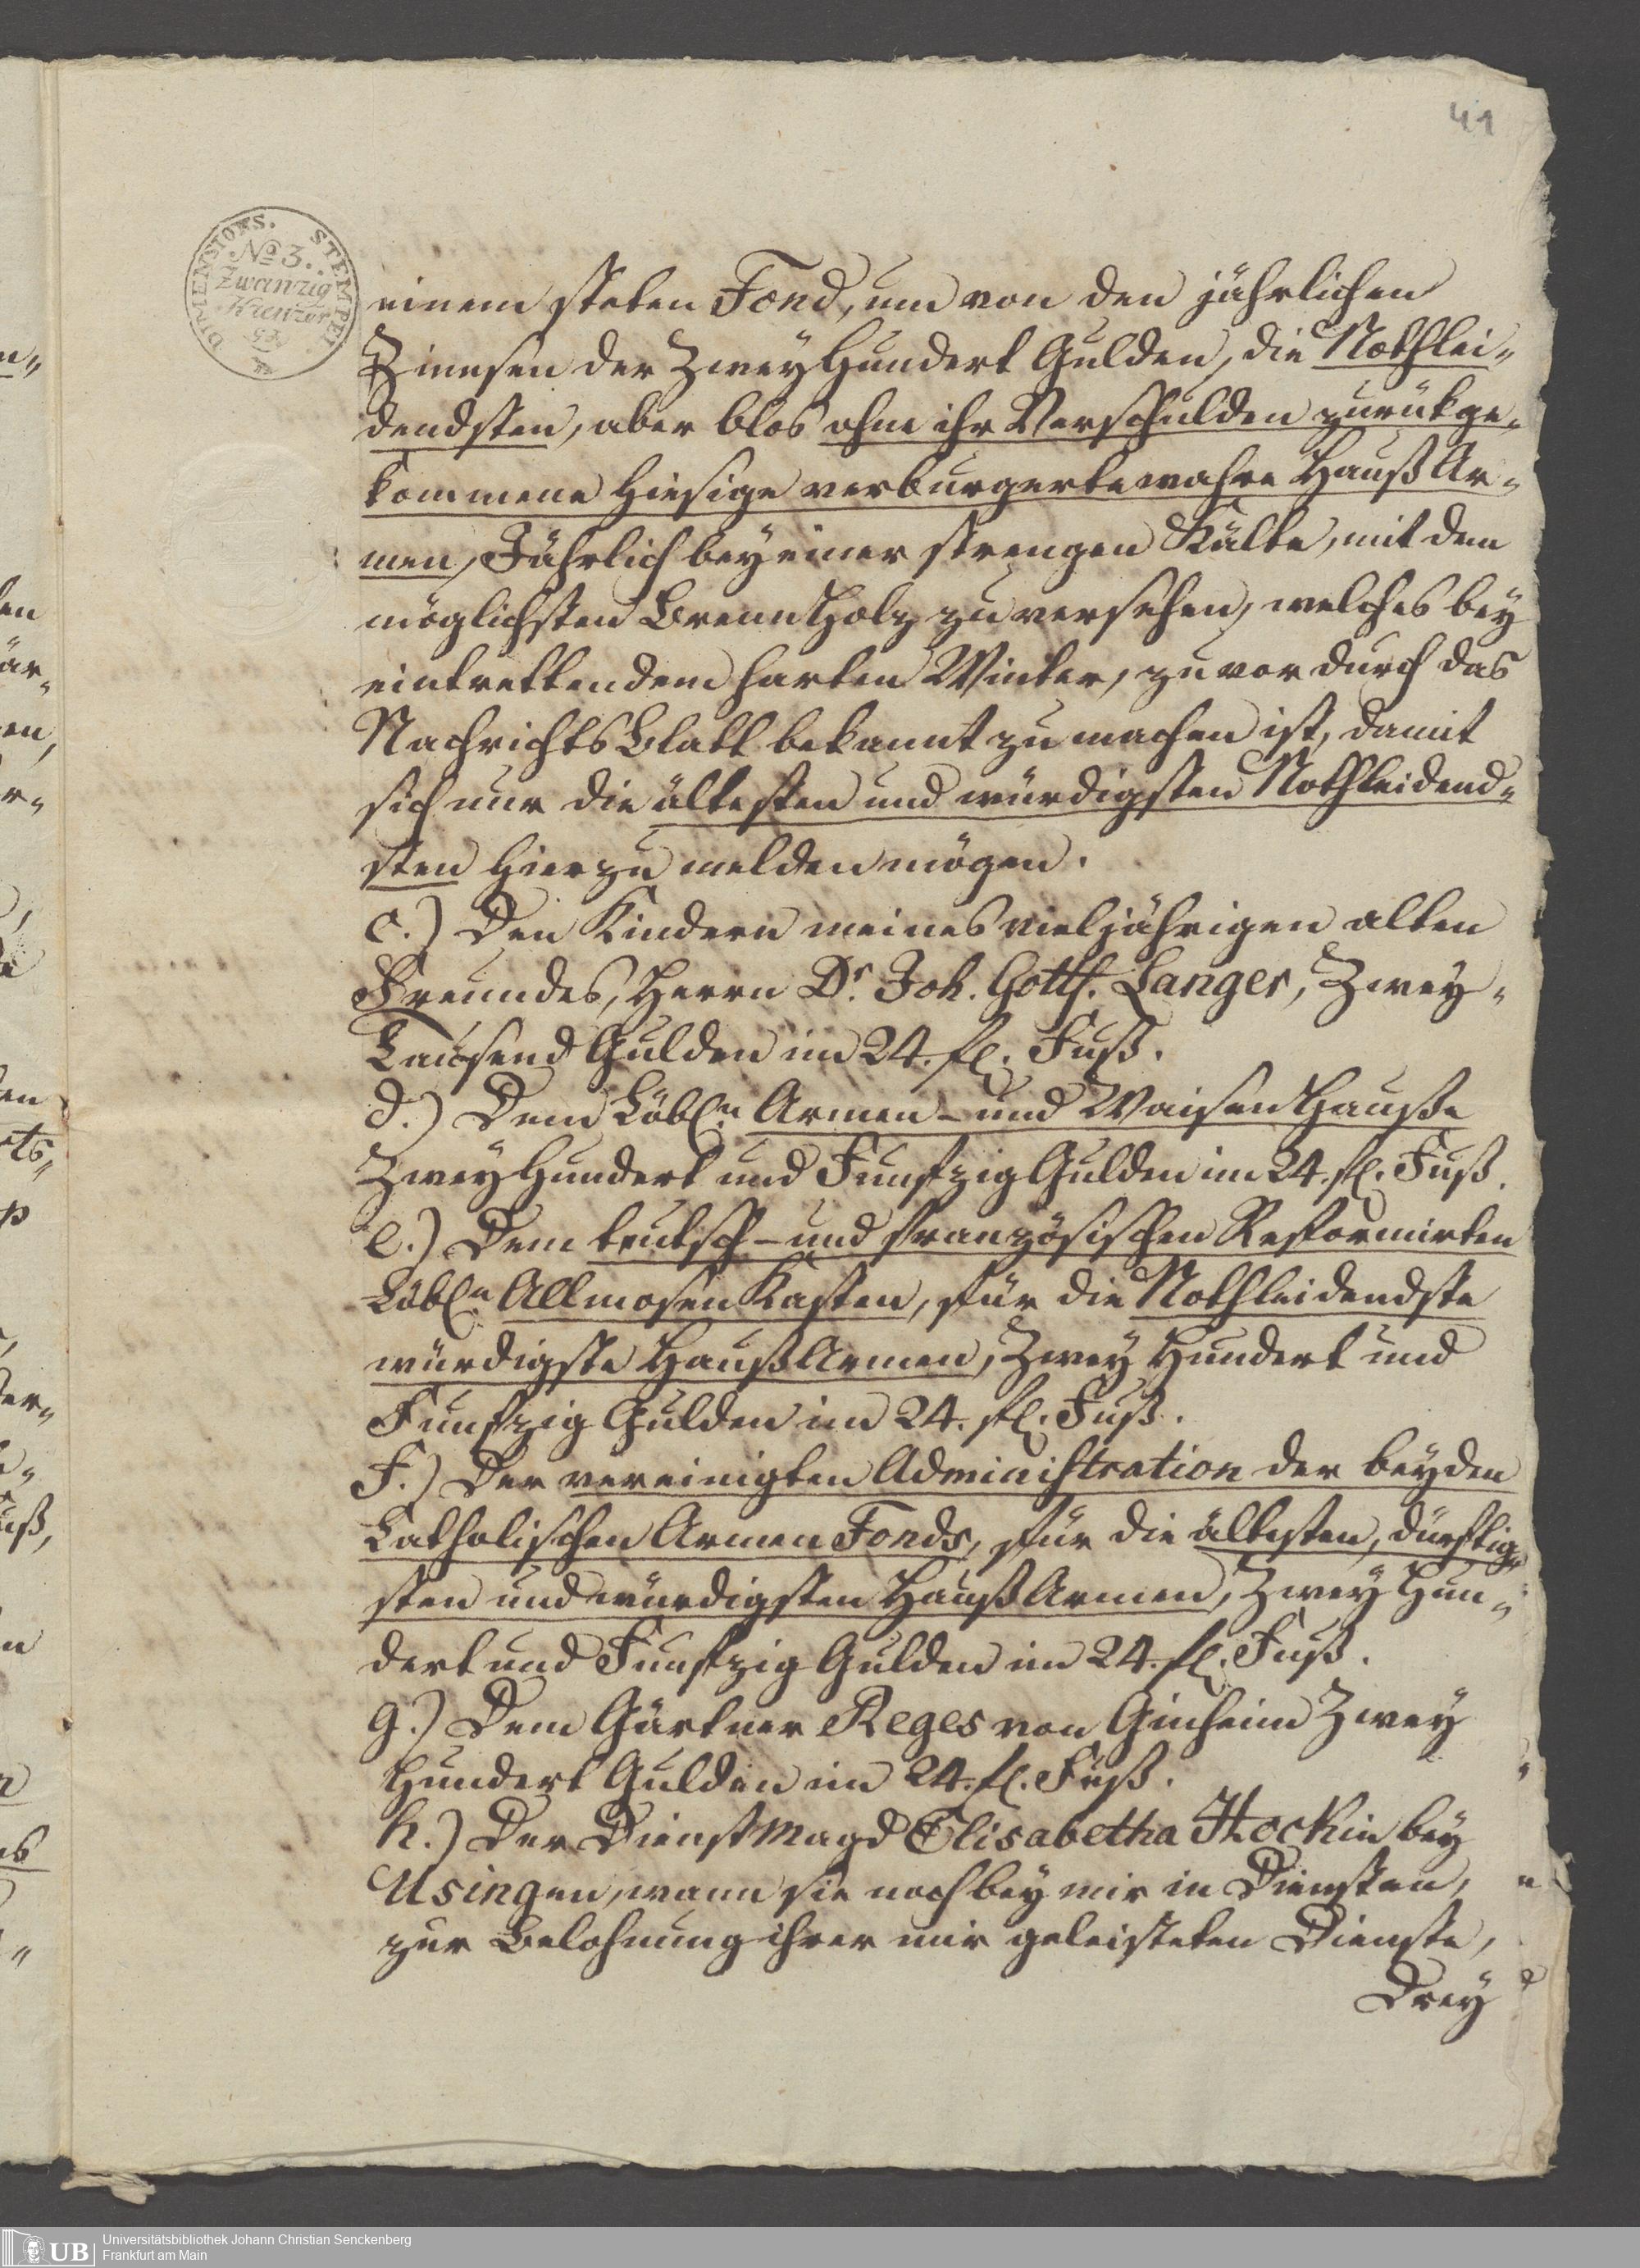 41
DIMENSIONS. STEMPEL
No 3.
Zwanzig
Kreuzer
einem steten Fond, um von den jährlichen
Zinnsen der ZweyHundert Gulden, die Nothlei„
dendsten, aber blos ohne ihr Verschulden zurükge„
kommene hiesige verburgerte wahre HaußAr„
men, Jährlich bey einer strengen Kälte, mit dem
möglichsten BrennHolz zu versehen, welches bey
eintrettendem harten Winter, zuvor durch das
NachrichtsBlatt bekannt zu machen ist, damit
sich nur die ältesten und würdigsten Nothleidend„
sten hierzu melden mögen.
c.) Den Kindern meines vieljährigen alten
Freundes, Herrn Dr. Joh. Gottf. Langer, Zwey„
Tausend Gulden im 24. fl. Fuß.
d.) Dem Löbln Armen- und WaisenHauße
ZweyHundert und Funfzig Gulden im 24. fl. Fuß.
e.) Dem teutsch- und französischen Reformirten
Löbln AllmosenKasten, für die Nothleidendste
würdigste HaußArmen, Zwey Hundert und
Funfzig Gulden im 24. fl. Fuß.
f.) Der vereinigten Administration der beyden
Catholischen Armen Fonds, für die ältesten, dürftig„
sten und würdigsten HaußArmen, Zwey Hun„
dert und Funfzig Gulden im 24. fl. Fuß.
g.) Dem Gärtner Reges von Ginheim Zwey
Hundert Gulden im 24. fl. Fuß.
h.) Der DienstMagd Elisabetha Hockin bey
Usingen, wann sie noch bey mir in Diensten,
zur Belohnung ihrer mir geleisteten Dienste,
Drey
UB
Universitätsbibliothek Johann Christian Senckenberg
Frankfurt am Main